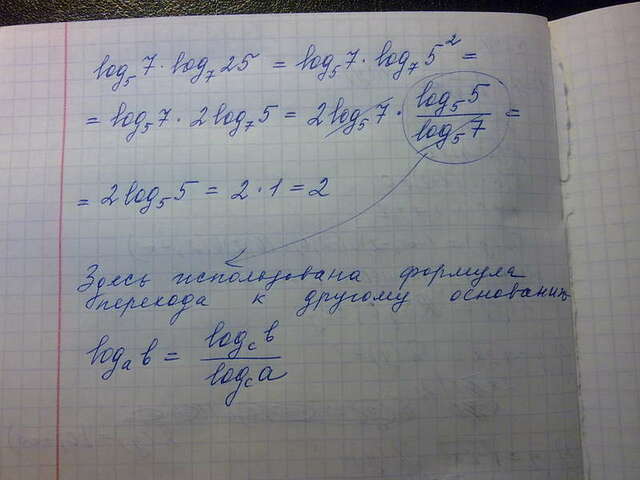 log₅7 · log₇25 = log₅7 · log₇5² =
= log₅7 · 2log₇5 = 2log₅7 · log₅5/log₅7 =
= 2log₅5 = 2 · 1 = 2
Здесь использована формула
перехода к другому основанию
logₐb = log꜀b/log꜀a